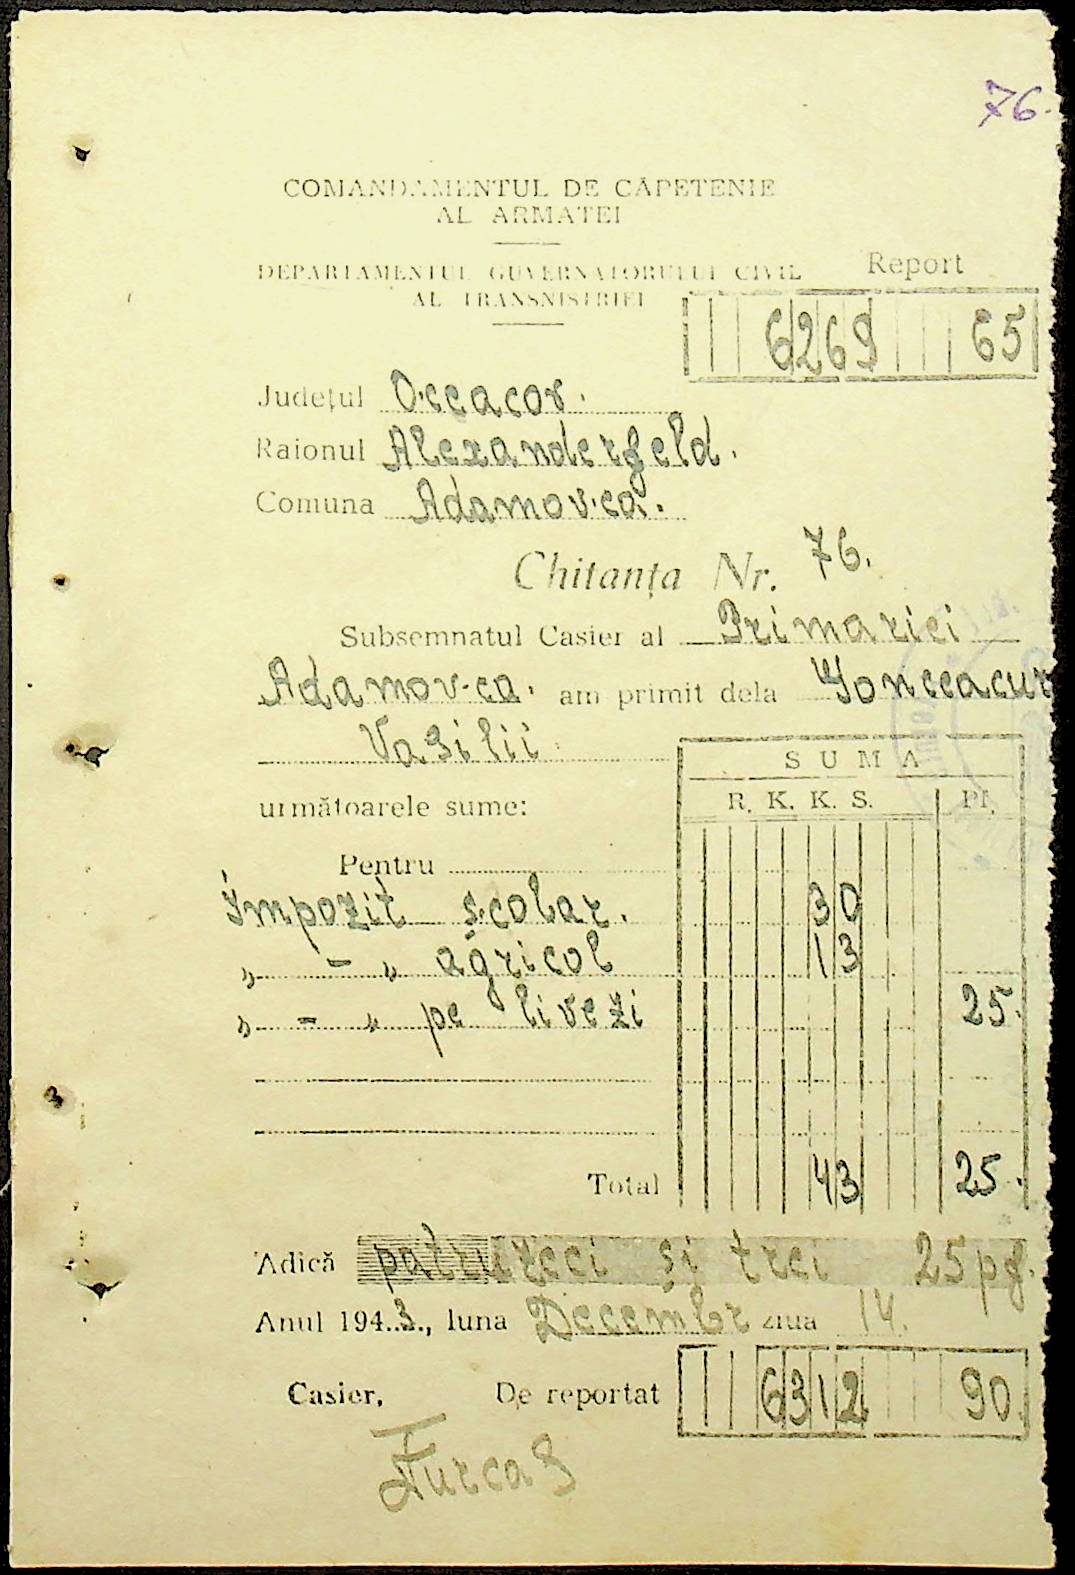 76.
COMANDAMENTUL DE CĂPETENIE
AL ARMATEI
DEPARTAMENTUL GUVERNATORULUI CIVIL
AL TRANSNISTRIEI
Report
6269 65
Județul Oceacov.
Raionul Alexanderfeld.
Comuna Adamovca.
Chitanța Nr. 76.
Subsemnatul Casier al Primariei
Adamovca. am primit dela Gonceacur
Vasilii
SUMA
următoarele sume: R. K. K. S. Pf.
Pentru
Impozit școlar. 30
„ - „ agricol 13
„ - „ pe livezi 25.
Total 43 25.
Adică patruzeci și trei 25 pf.
Anul 194.3., luna Decembr ziua 14.
Casier, De reportat 6312 90.
Furcas